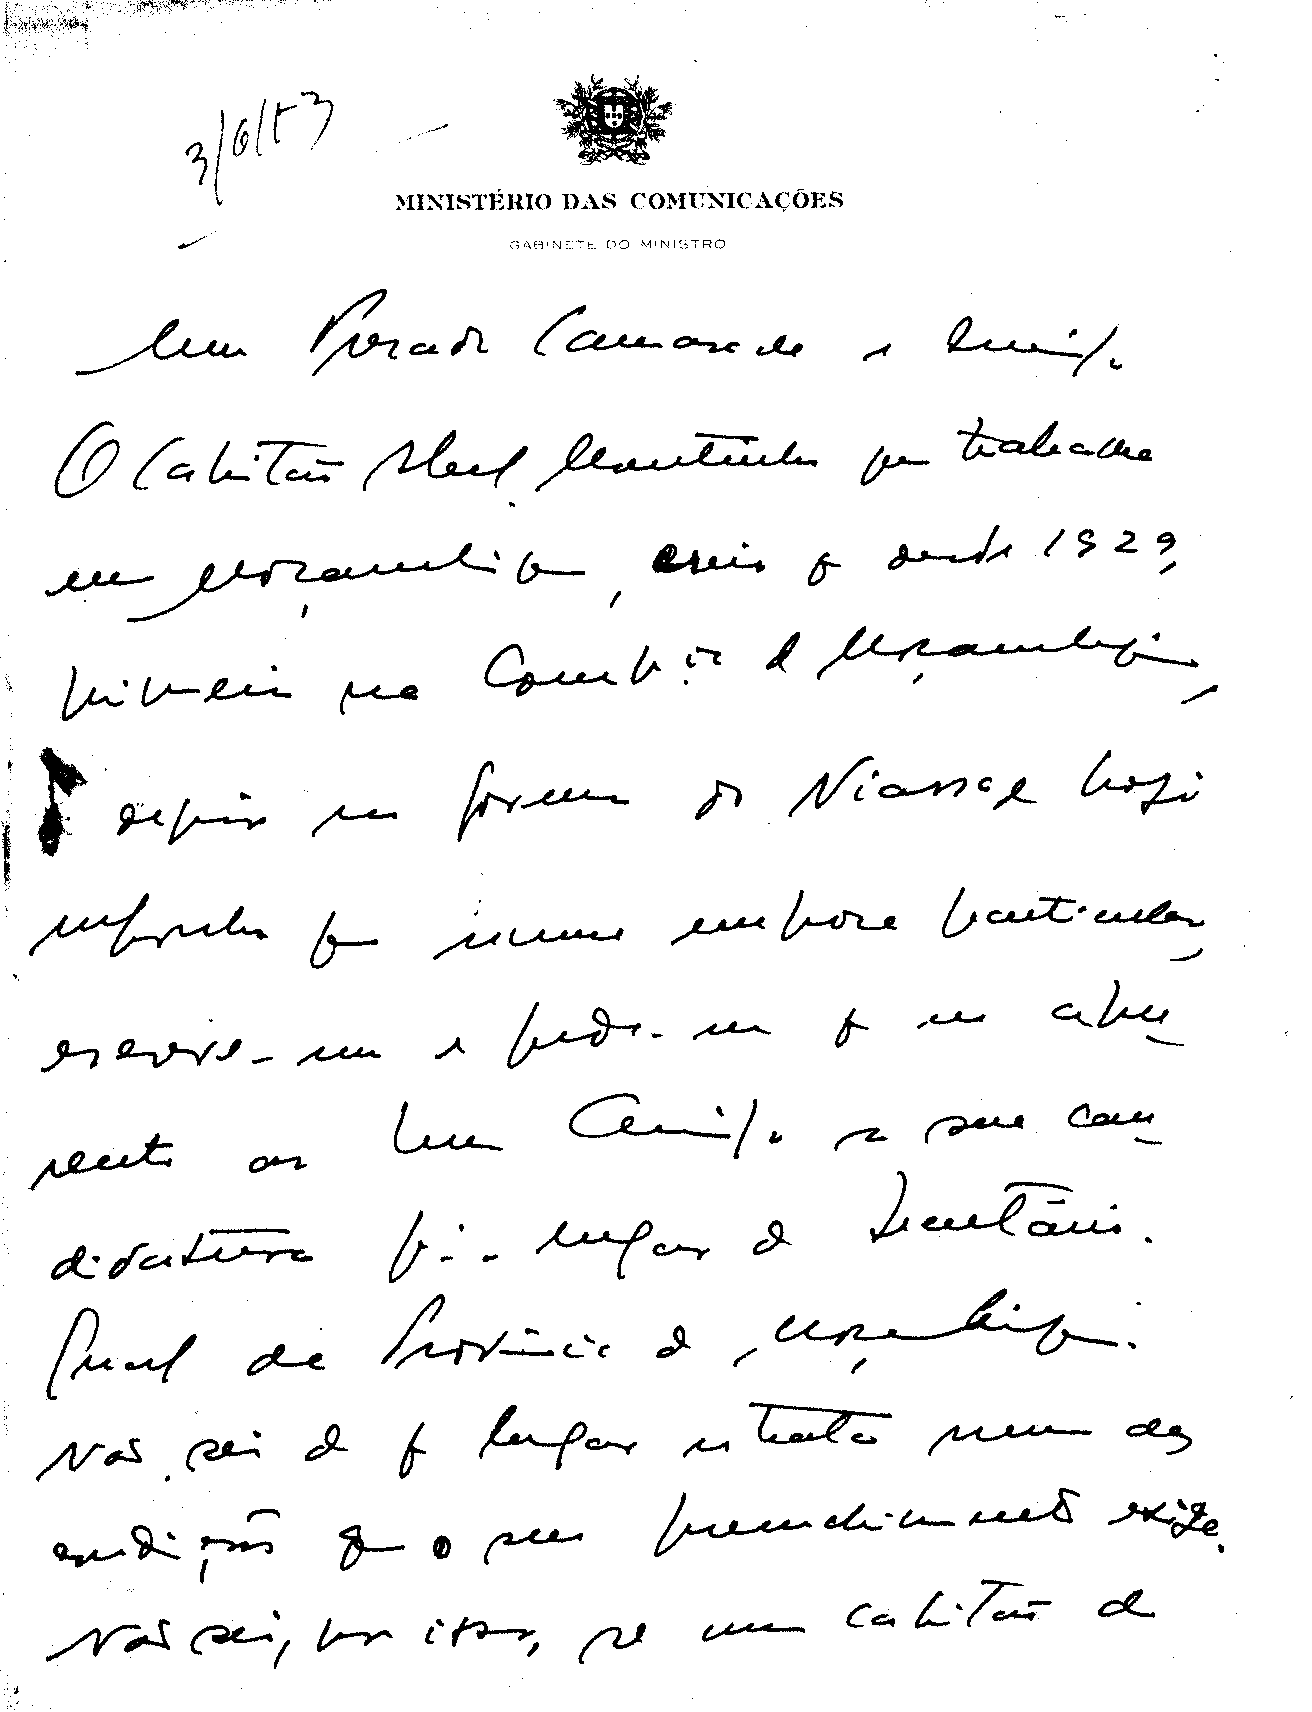 3/6/53
MINISTÉRIO DAS COMUNICAÇÕES
GABINETE DO MINISTRO
Meu Prezado Camarada e Amigo
O Capitão Abel Moutinho que trabalha
em Moçambique, creio q desde 1929,
primeiro na Comp.ia de Moçambique,
depois no governo do Niassa e hoje
suponho que numa empresa particular,
escreve-me e pede-me q eu apre_
sente ao meu Amigo a sua can_
didatura p.a o lugar de Secretário.
Geral da Província de Moçambique.
Não sei de q lugar se trata nem das
condições que o seu preenchimento exige.
Não sei, por isso, se um capitão de